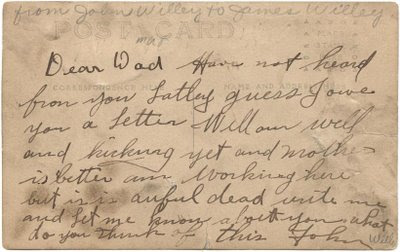 from John Willey to James Willey
POST CARD
Dear Dad Have not heard
CORRESPONDENCE HERE NAME AND ADDRESS
from you Latley guess I owe
you a letter Well am well
and kicking yet and mother
is better am Working here
but it is awful dead write me
and let me know about you what
do you think of this John